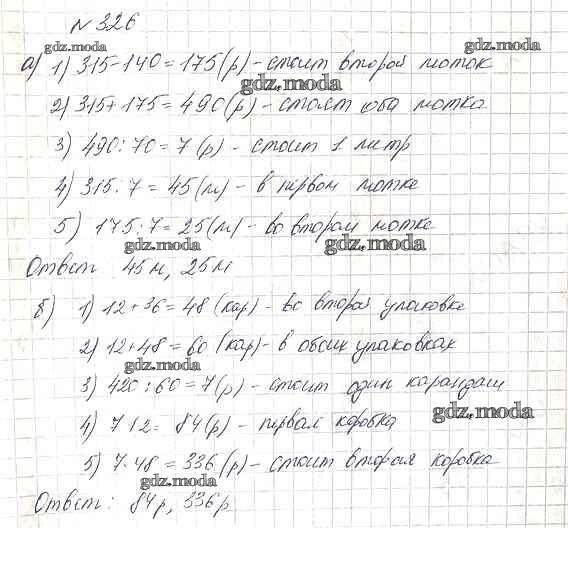 № 326
gdz.moda gdz.moda
а) 1) 315-140=175(р)-стоит второй моток
gdz.moda
2) 315+175=490(р)-стоят оба мотка
3) 490:70=7(р)-стоит 1 литр
4) 315:7=45(м)-в первом мотке
5) 175:7=25(м)-во втором мотке
gdz.moda gdz.moda
Ответ: 45м, 25м
б) 1) 12+36=48(кар)-во второй упаковке
2) 12+48=60(кар)-в обоих упаковках
gdz.moda
3) 420:60=7(р)-стоит один карандаш
gdz.moda
4) 7·12=84(р)-первая коробка
5) 7·48=336(р)-стоит вторая коробка
gdz.moda
Ответ: 84р, 336р